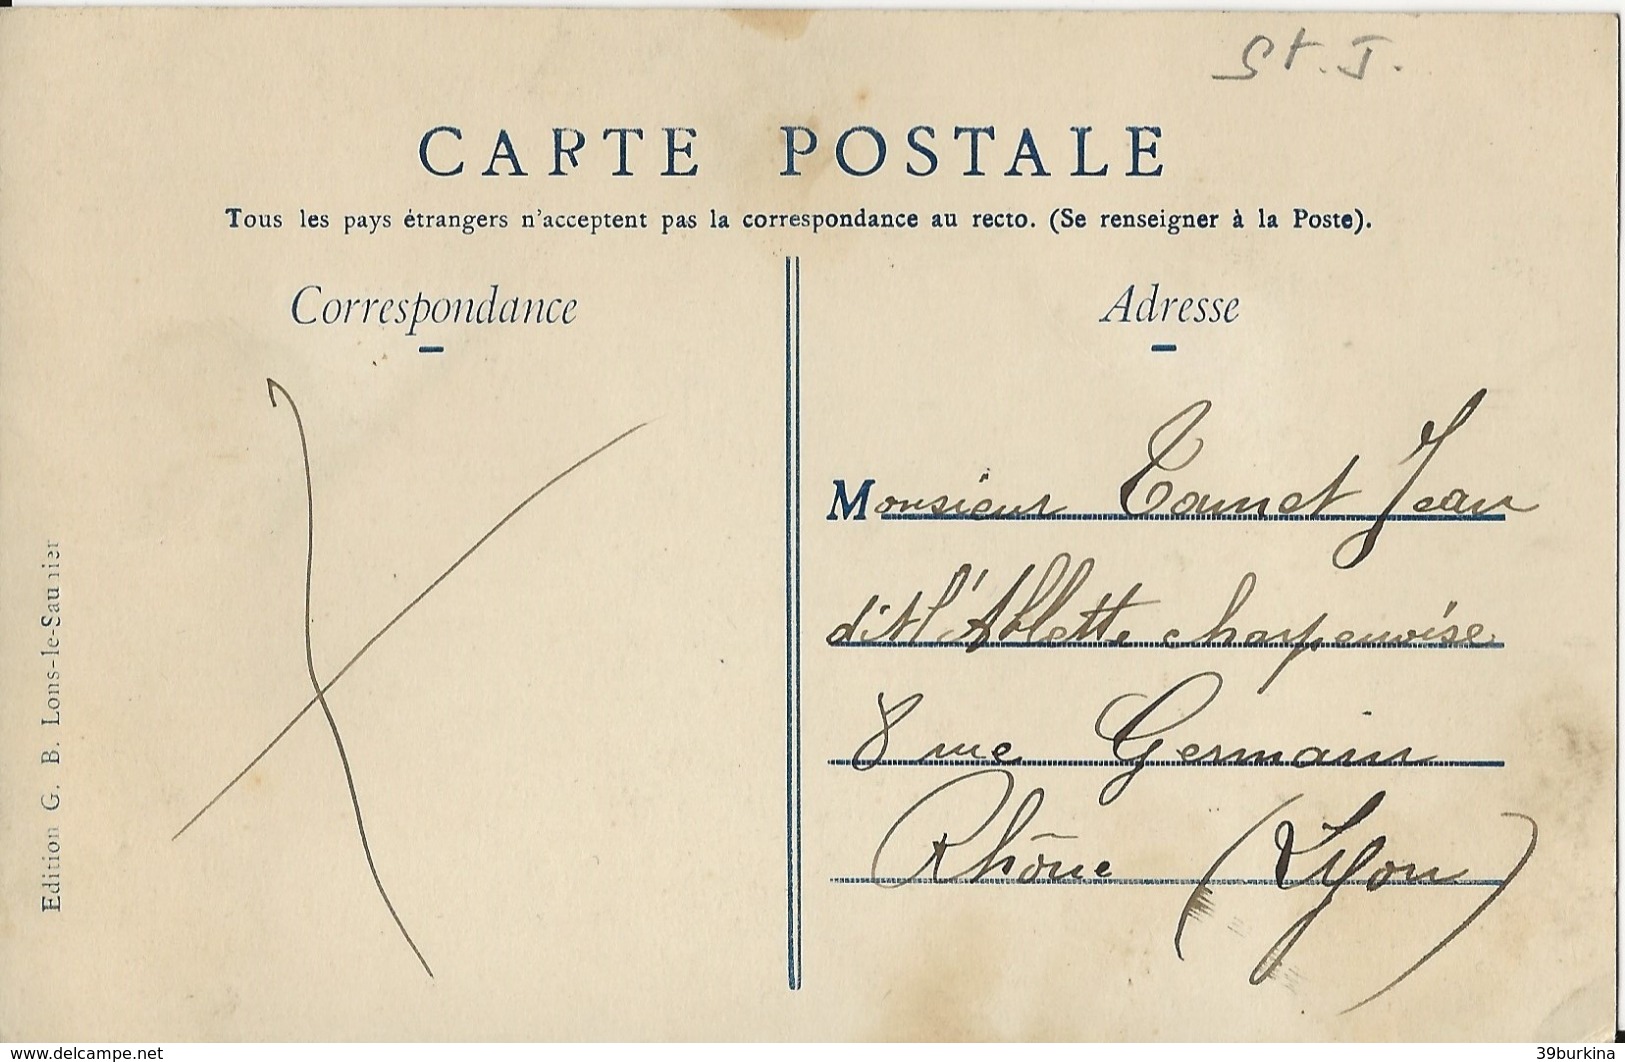 St. J.
CARTE POSTALE
Tous les pays étrangers n'acceptent pas la correspondance au recto. (Se renseigner à la Poste).
Correspondance
Adresse
Monsieur Tournet Jean
dit l'Ablette charpenoise
8 rue Germain
Rhône (Lyon)
Edition G. B. Lons-le-Saunier
www.delcampe.net
39burkina